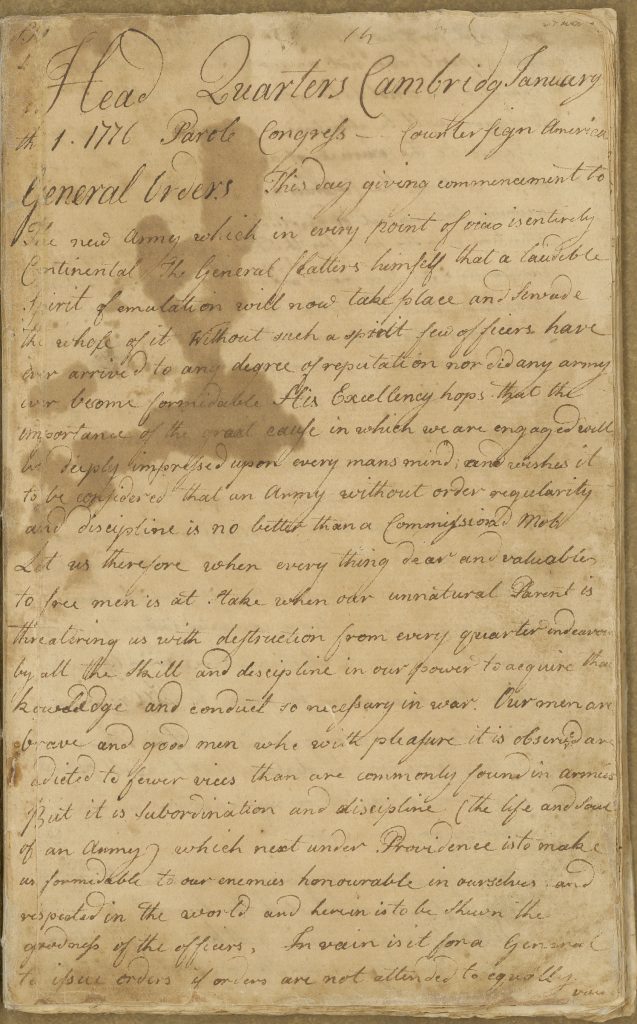 Head Quarters Cambridg January
th 1. 1776 Parole Congress — Countersign America
General Orders This day giving commencement to
The new Army which in every point of view is entirely
Continental The General flatters himself that a laudible
Spirit of emulation will now take place and
the whole of it Without such a spirit few officers have
ever arrived to any degree of reputation nor did any army
ever become formidable His Excellency hops that the
importance of the great cause in which we are engaged will
be deeply impressed upon every mans mind; and wishes it
to be considered that an Army without order regularity
and discipline is no better than a Commission'd Mob
Let us therefore when every thing dear and valuable
to free men is at stake when our unnatural Parent is
threatering us with destruction from every quarter indeavour
by all the skill and descipline in our power to acquire tha
knowledge and conduct so necessary in war. Our men are
brave and good men who with pleasure it is observ'd are
adicted to fewer vices than are commonly found in armies
But it is Subordination and discipline (the life and Soul
of an Army) which next under Providence is to make
us formidable to our enemies honourable in ourselves and
respected in the world and herein is to be shewn the
goodness of the officers. In vain is it for a General
to issue orders if orders are not attended to equally